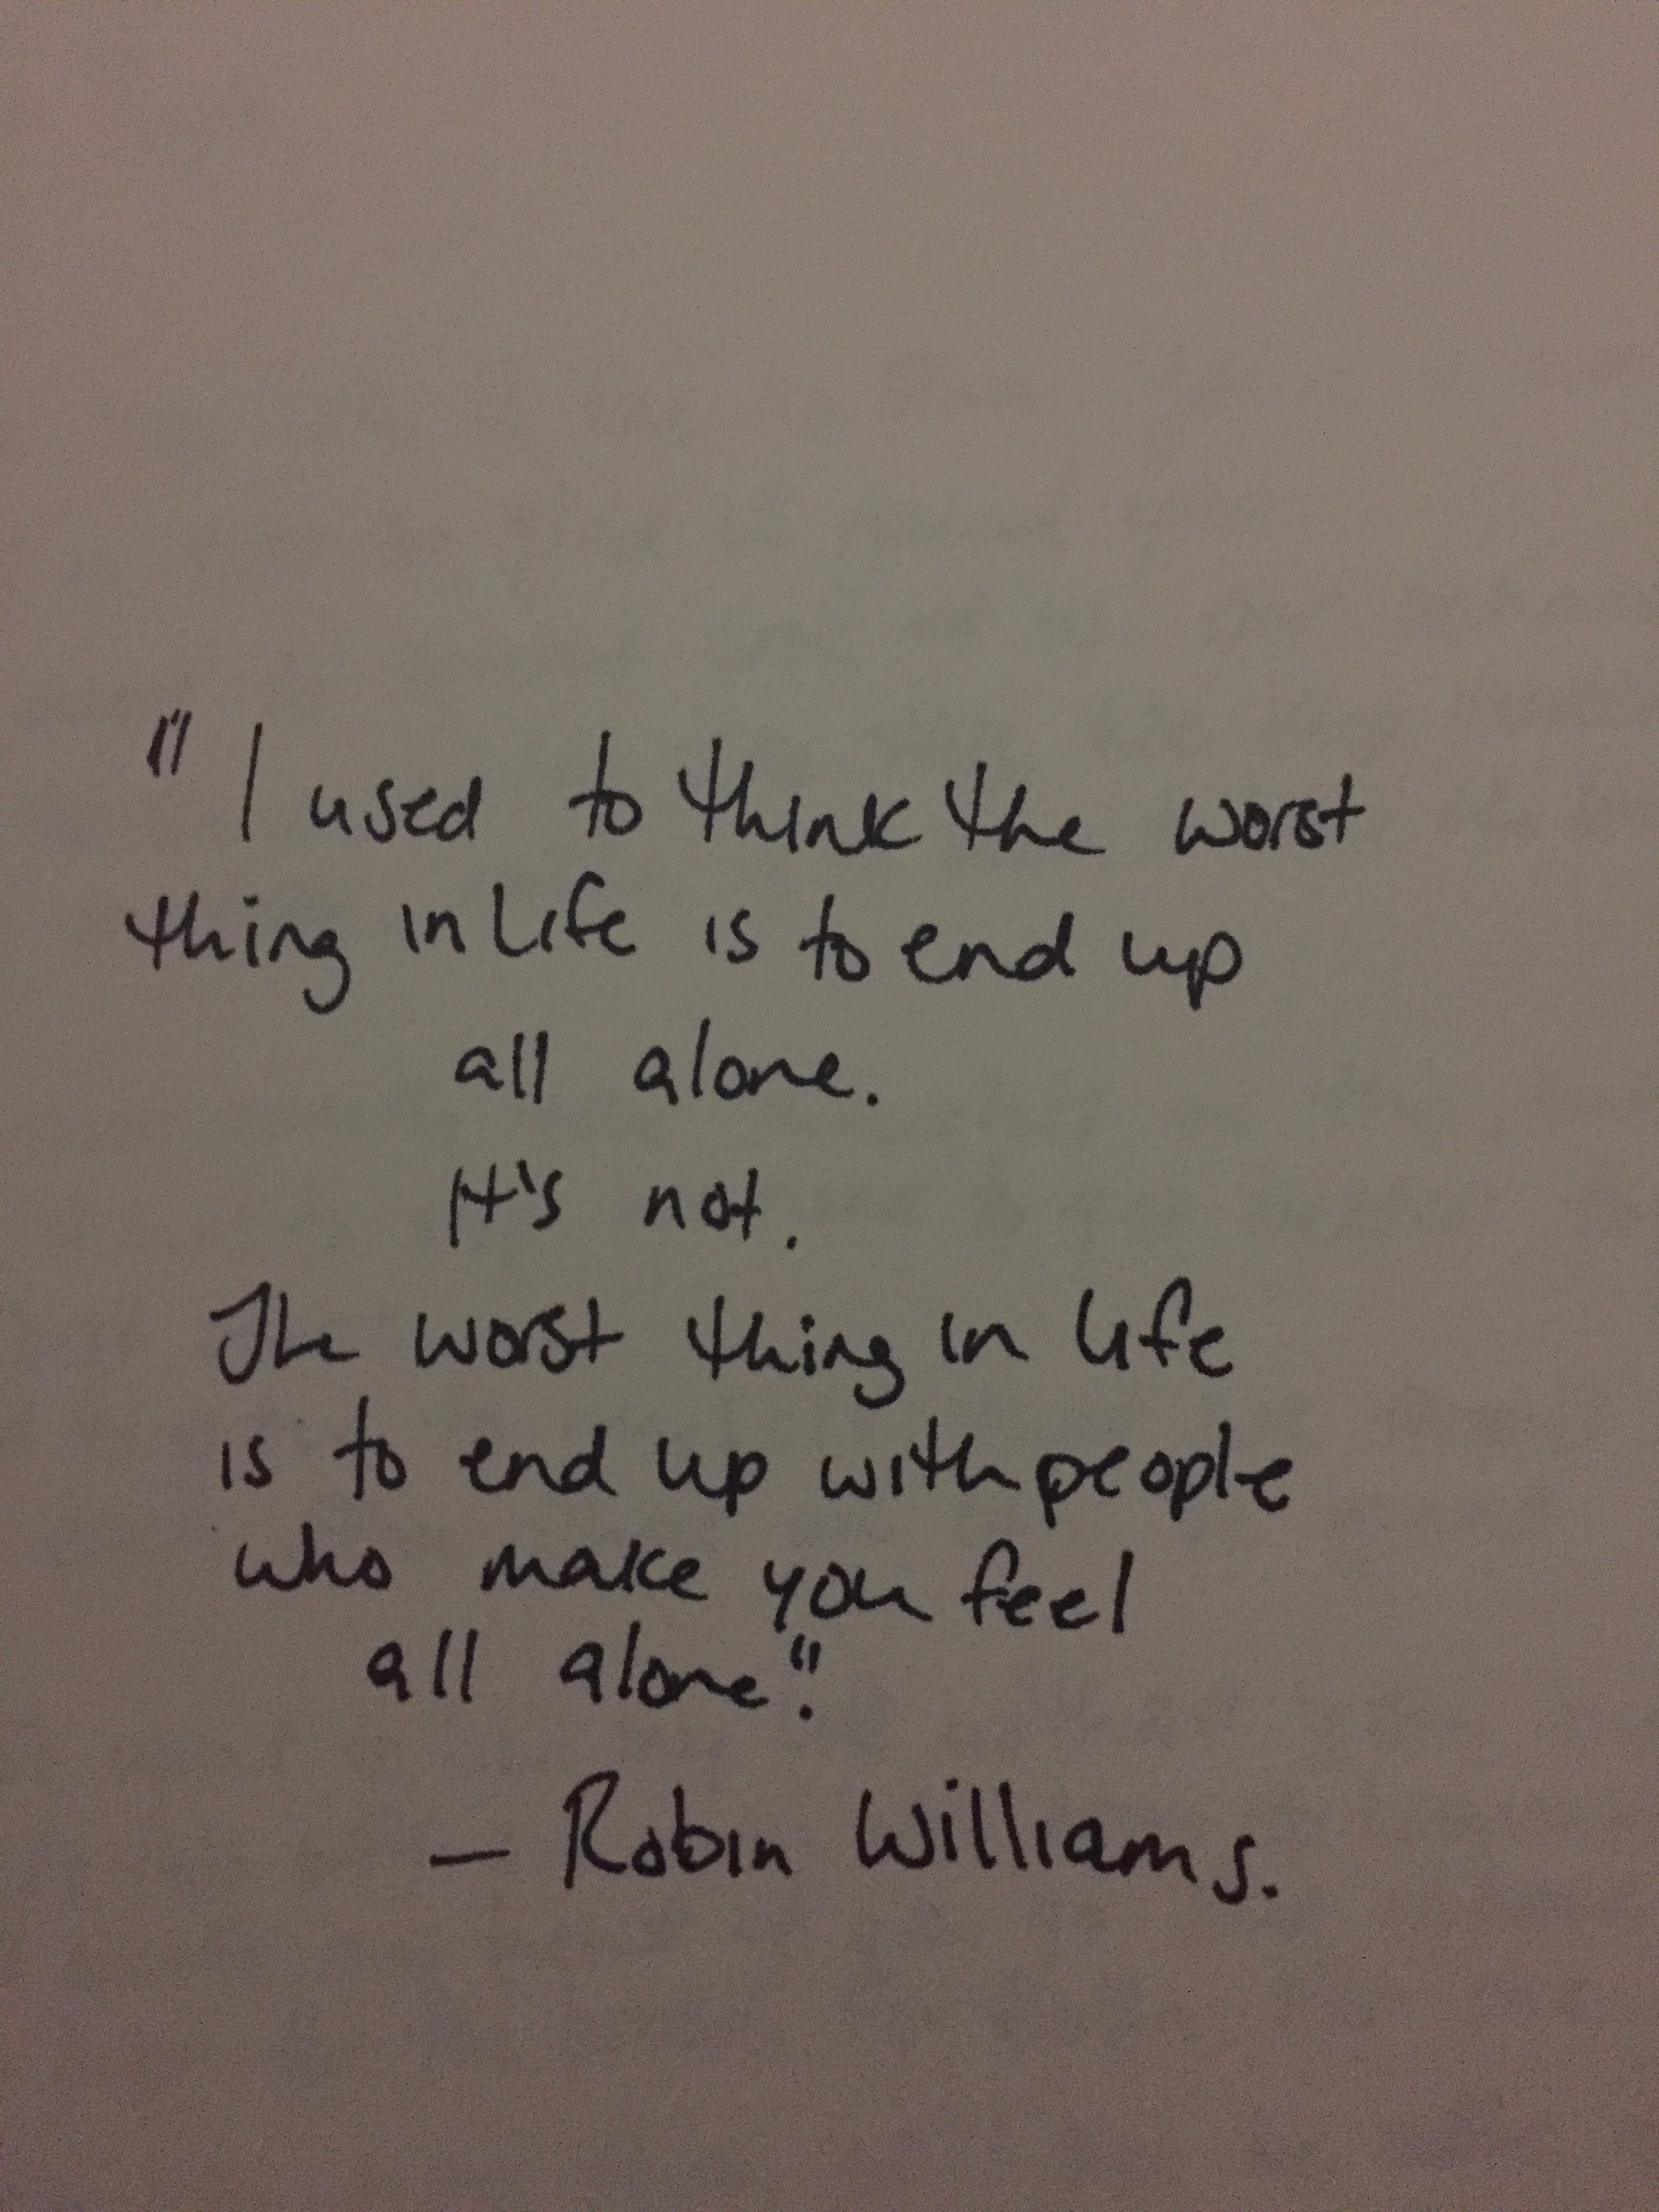 "I used to think the worst
thing in life is to end up
all alone.
It's not.
The worst thing in life
is to end up with people
who make you feel
all alone".
— Robin Williams.